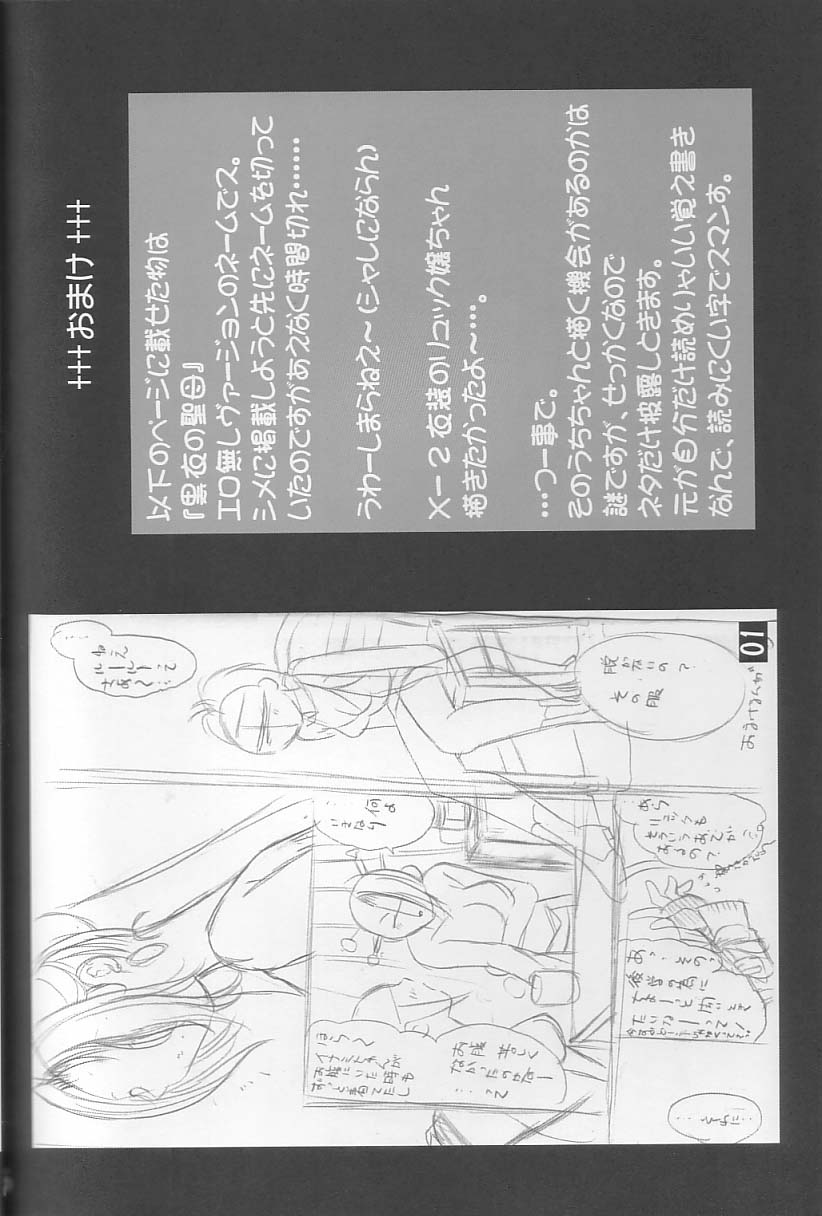 +++おまけ+++
以下のページに載せた物は
『黒夜の聖母』
エロ無しヴァージョンのネームでス。
シメに掲載しようと先にネームを切って
いたのですがあえなく時間切れ……
うわーしまらねえ〜(シャレにならん)
X−2衣装のリュック嬢ちゃん
描きたかったよ〜…。
…つー事で。
そのうちちゃんと描く機会があるのかは
謎ですが、せっかくなので
ネタだけ披露しときます。
元が自分だけ読めりゃいい覚え書き
なんで、読みにくい字でスマンす。
01
ねえ
ルールーってさあ〜…
その服
何よ
いきなり
お腹
苦しく
なかったのかなー
…って
ほら〜
お腹にいた時も
あっ…その、
後学の為に